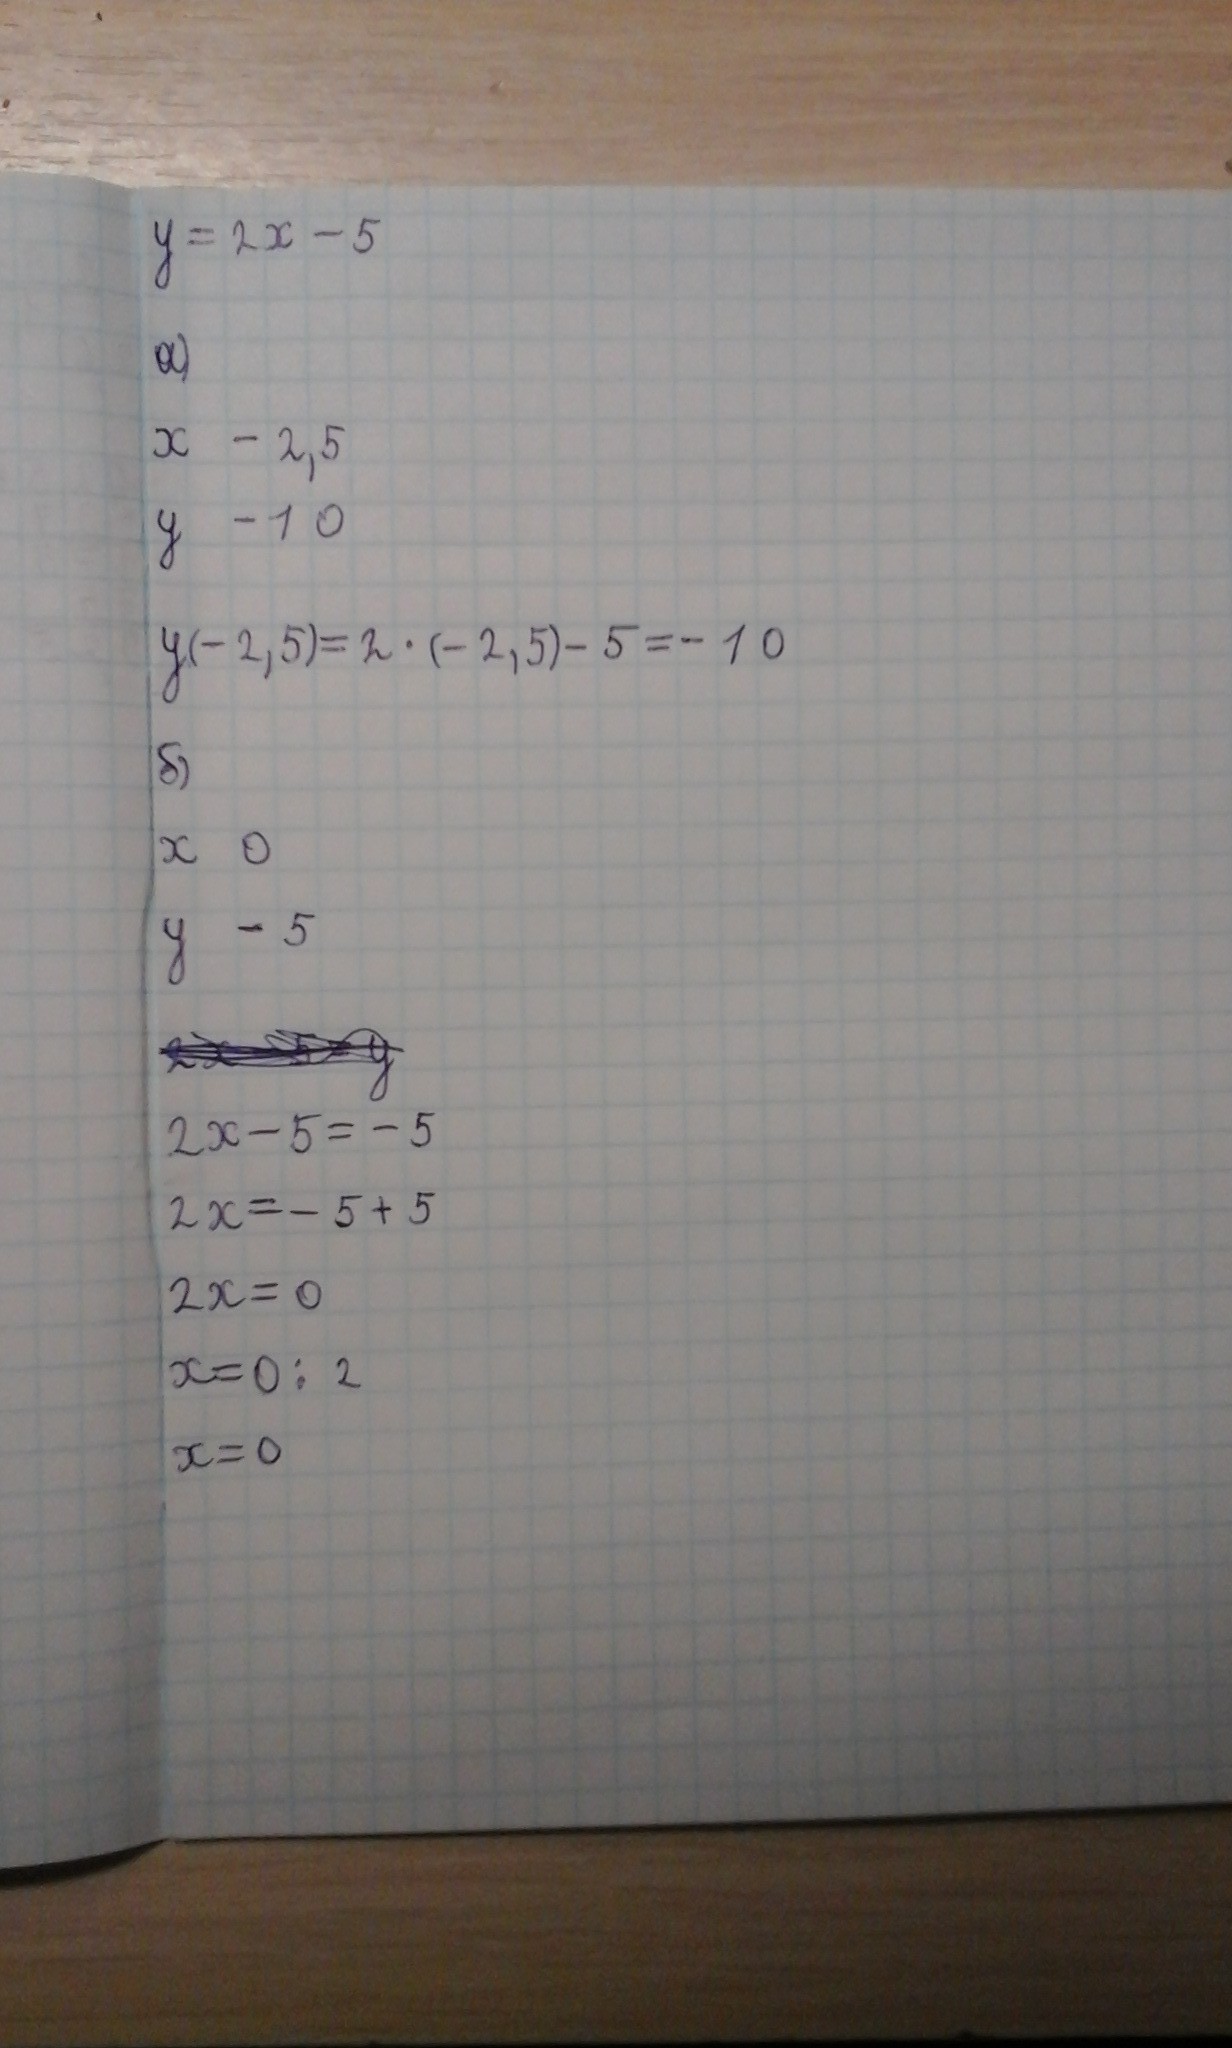 y = 2x - 5
а)
x - 2,5
y - 10
y(- 2,5) = 2 · (- 2,5) - 5 = - 10
б)
x 0
y - 5
2x - 5 = - 5
2x = - 5 + 5
2x = 0
x = 0 : 2
x = 0